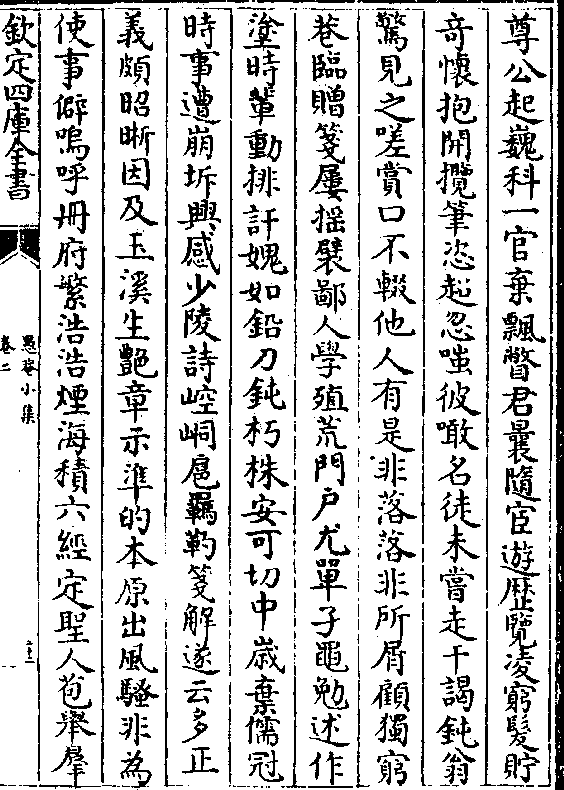 尊公起巍科一官棄飄瞥君曩隨宦遊歴覽凌窮髮貯
竒懐抱開攬筆恣起忽嗤彼噉名徒未嘗走干謁鈍翁
驚見之嗟賞口不輟他人有是非落落非所屑顧獨窮
巷臨贈箋屢摇襞鄙人學殖荒門户尤單孑黽勉述作
塗時輩動排訐媿如鉛刀鈍朽株安可切中嵗棄儒冠
時事遭崩坼興感少陵詩崆峒扈羈靮箋解遂云多正
義頗昭晰因及玉溪生艷章示準的本原出風騷非為
使事僻嗚呼册府繁浩浩煙海積六經定聖人苞舉羣
欽定四庫全書
愚菴小集
卷二